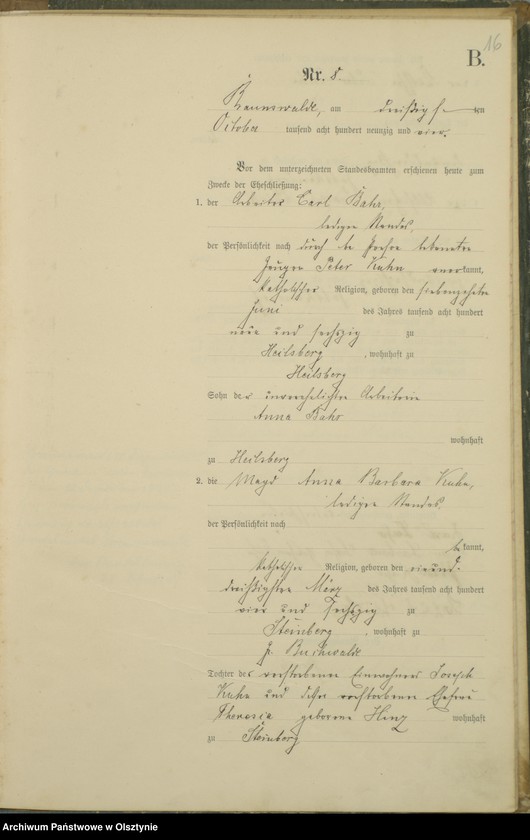 16
B.
Nr. 8.
am dreißigsten
October tausend acht hundert neunzig und vier.
Vor dem unterzeichneten Standesbeamten erschienen heute zum
Zwecke der Eheschließung:
1. der Arbeiter Carl Bahr,
ledigen Standes,
der Persönlichkeit nach durch
Zeugen Peter Kuhn anerkannt,
katholischer Religion, geboren den siebenzehnten
Juni des Jahres tausend acht hundert
neun und sechszig zu
Heilsberg, wohnhaft zu
Heilsberg
Sohn der unverehelichten Arbeiterin
Anna Bahr
wohnhaft
zu Heilsberg
2. die Magd Anna Barbara Kuhn,
ledigen Standes,
der Persönlichkeit nach
bekannt,
katholischer Religion, geboren den
März des Jahres tausend acht hundert
vier und sechszig zu
Steinberg, wohnhaft zu
Buchwalde
Tochter des verstorbenen Einwohners Joseph
Kuhn und dessen verstorbenen Ehefrau
Theresia geborene Hinz wohnhaft
zu Steinberg
Archiwum Państwowe w Olsztynie